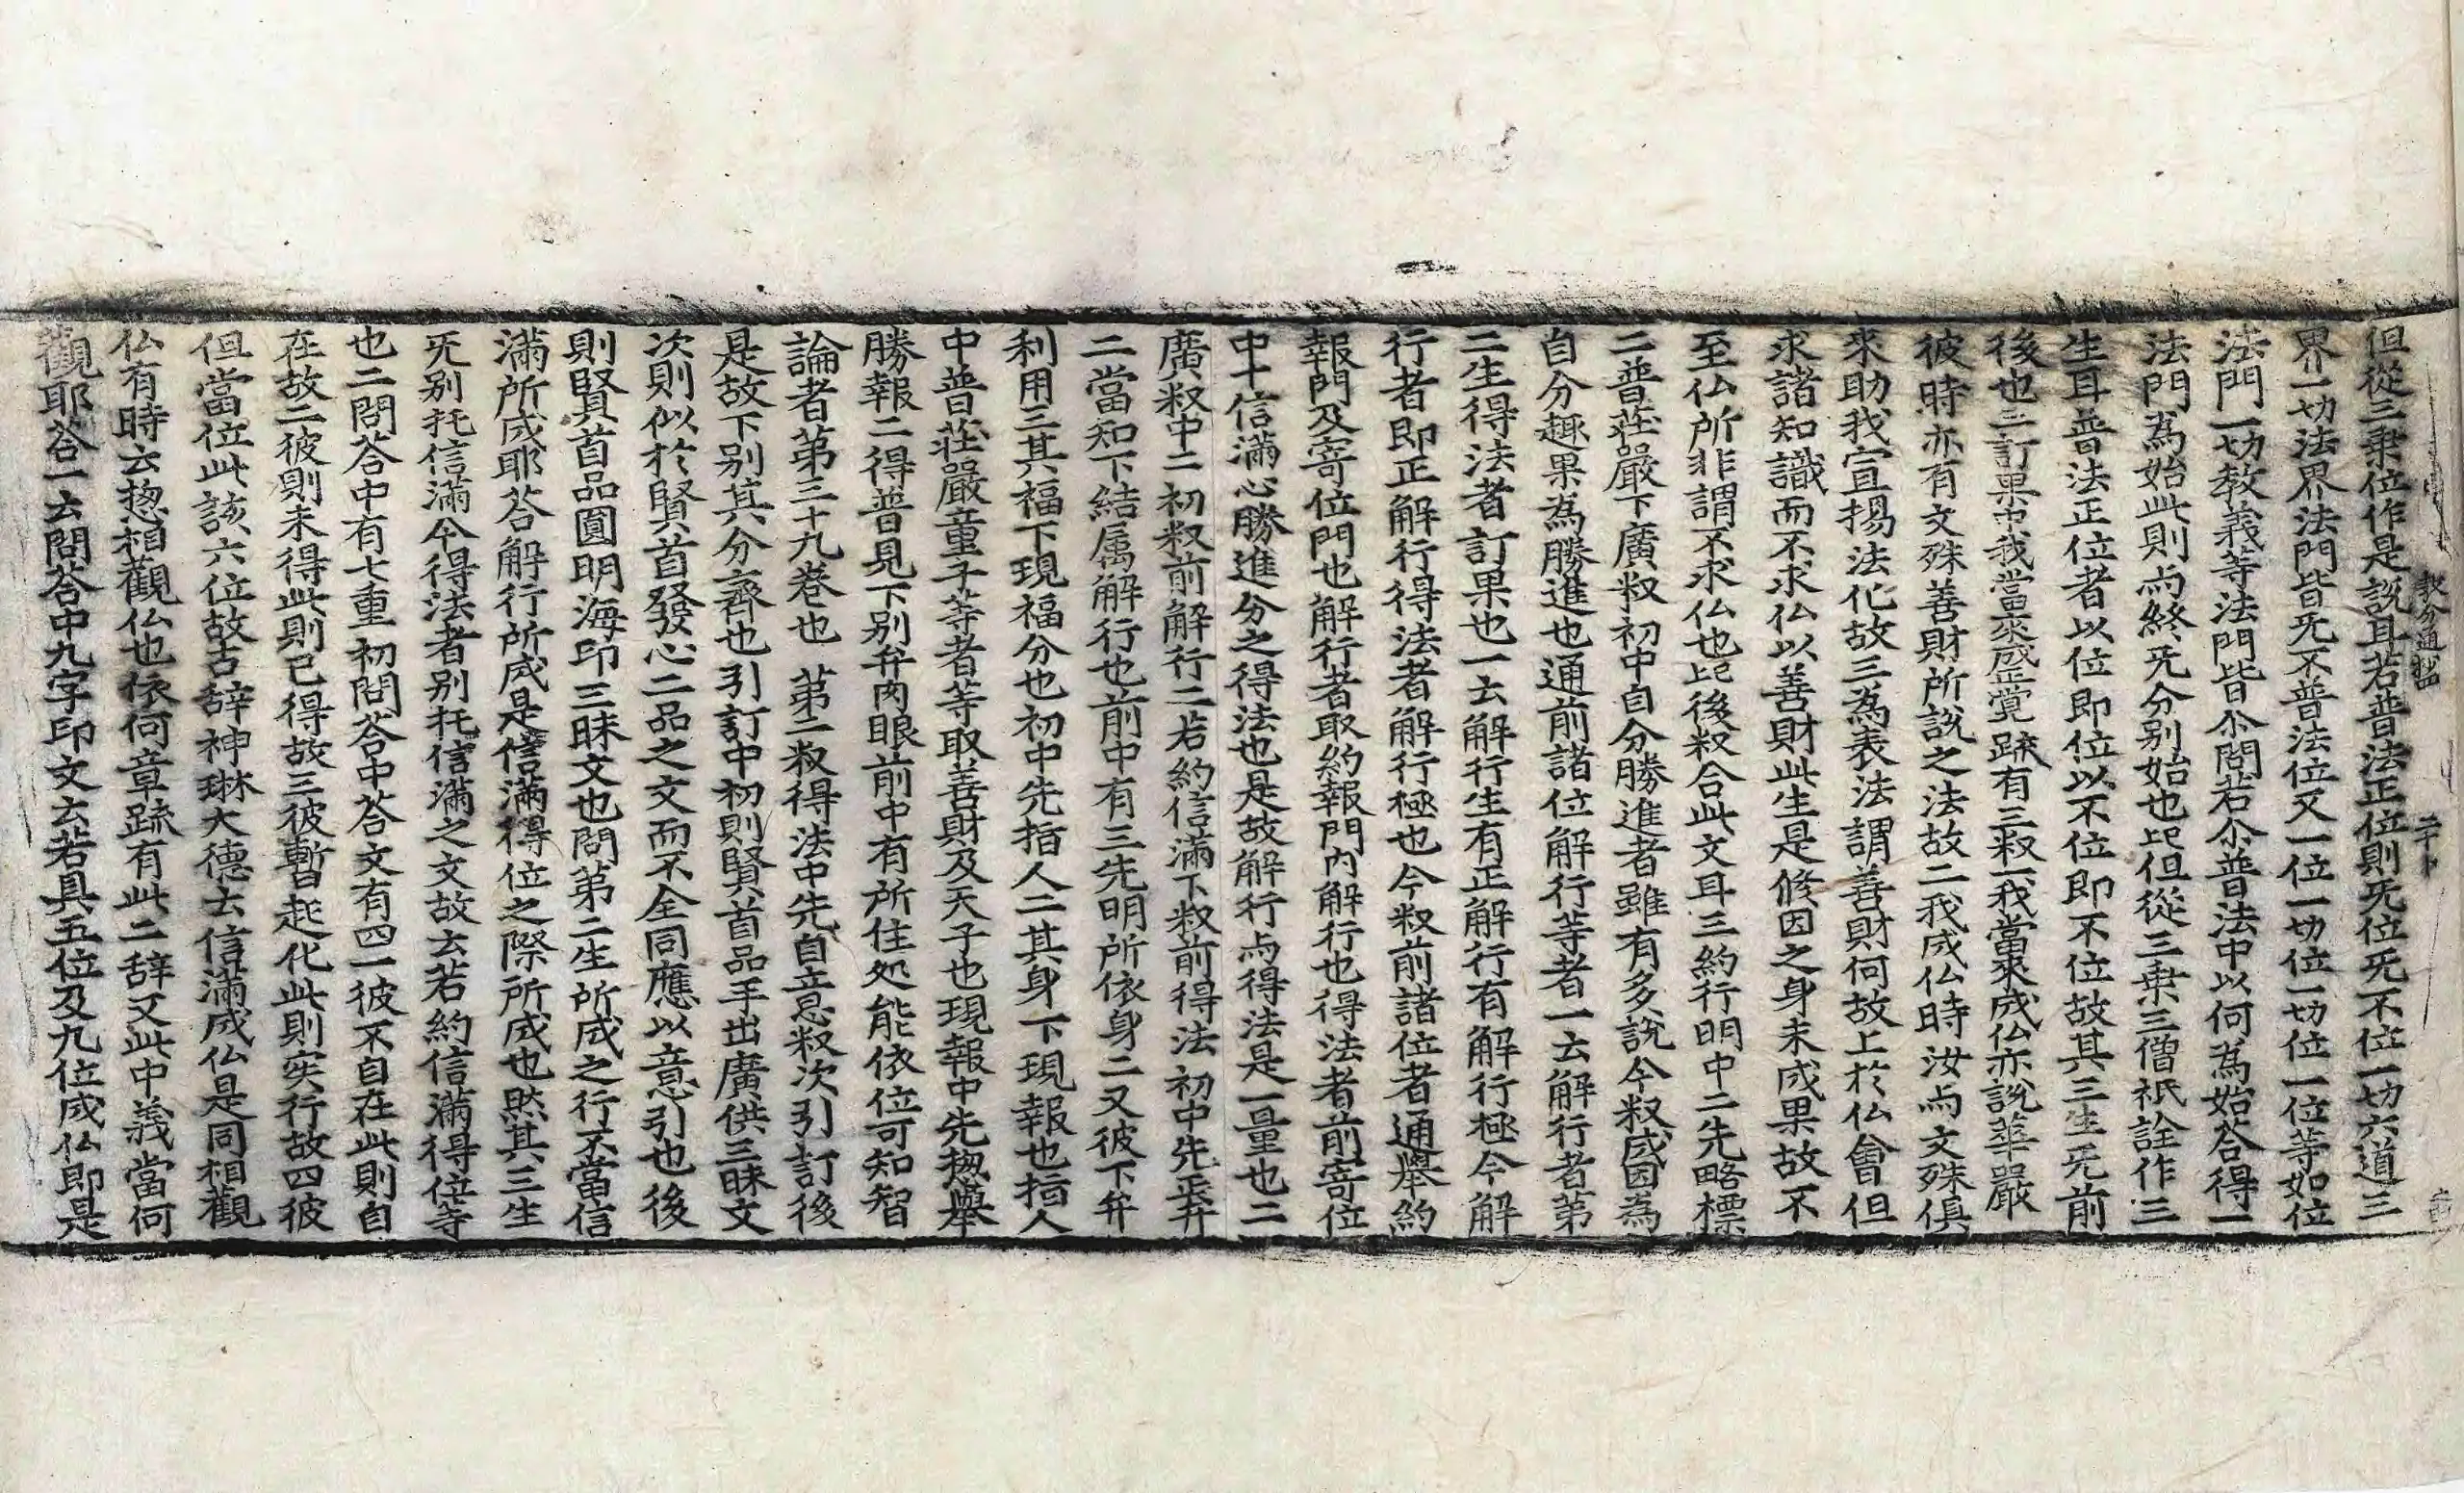 但從三乗位作是説耳若普法正位則旡位旡不位一切六道三
界一切法界法門皆旡不普法位又一位一切位一切位一位等如位
法門一切教義等法門皆尒問若尒普法中以何為始荅得一
法門為始此則尓終旡分别始也此但從三乗三僧祇詮作三
生耳普法正位者以位即位以不位即不位故其三生旡前
後也三訂果中我當來盛正覚䟽有三叙一我當來成仏亦説華嚴
彼時亦有文殊善財所説之法故二我成仏時汝尓文殊俱
來助我宣揚法化故三為表法謂善財何故上於仏會但
求諸知識而不求仏以善財此生是修因之身未成果故不
至仏所非謂不求仏也此後叙合此文耳三約行明中二先略標
二普荘嚴下廣叙初中自分勝進者雖有多説今叙成因為
自分趣果為勝進也通前諸位解行等者一云解行者第
二生得法者訂果也一云解行生有正解行有解行極今解
行者即正解行得法者解行極也今叙前諸位者通舉約
報門及寄位門也解行者取約報門內解行也得法者前寄位
中十信滿心勝進分之得法也是故解行尓得法是一量也二
廣叙中二初叙前解行二若約信滿下叙前得法初中先㳟弁
二當知下結属解行也前中有三先明所依身二又彼下弁
利用三其福下現福分也初中先指人二其身下現報也指人
中普荘嚴童子等者等取善財及天子也現報中先捴舉
勝報二得普見下別弁肉眼前中有所住処能依位可知智
論者第三十九巻也 第二叙得法中先自立忌叙次引訂後
是故下别其分齊也引訂中初則賢首品手出廣供三昧文
次則似於賢首發心二品之文而不全同應以意引也後
則賢首品圓明海印三昧文也問第二生所成之行不當信
滿所成耶荅解行所成是信滿得位之際所成也然其三生
旡别托信滿今得法者别托信滿之文故云若約信滿得位等
也二問荅中有七重初問荅中荅文有四一彼不自在此則自
在故二彼則未得此則已得故三彼暫起化此則实行故四彼
但當位此該六位故古辞神琳大德云信滿成仏是同相觀
仏有時云捴相觀仏也依何章䟽有此二辞又此中義當何
觀耶荅一云問荅中九字印文云若具五位及九位成仏即是